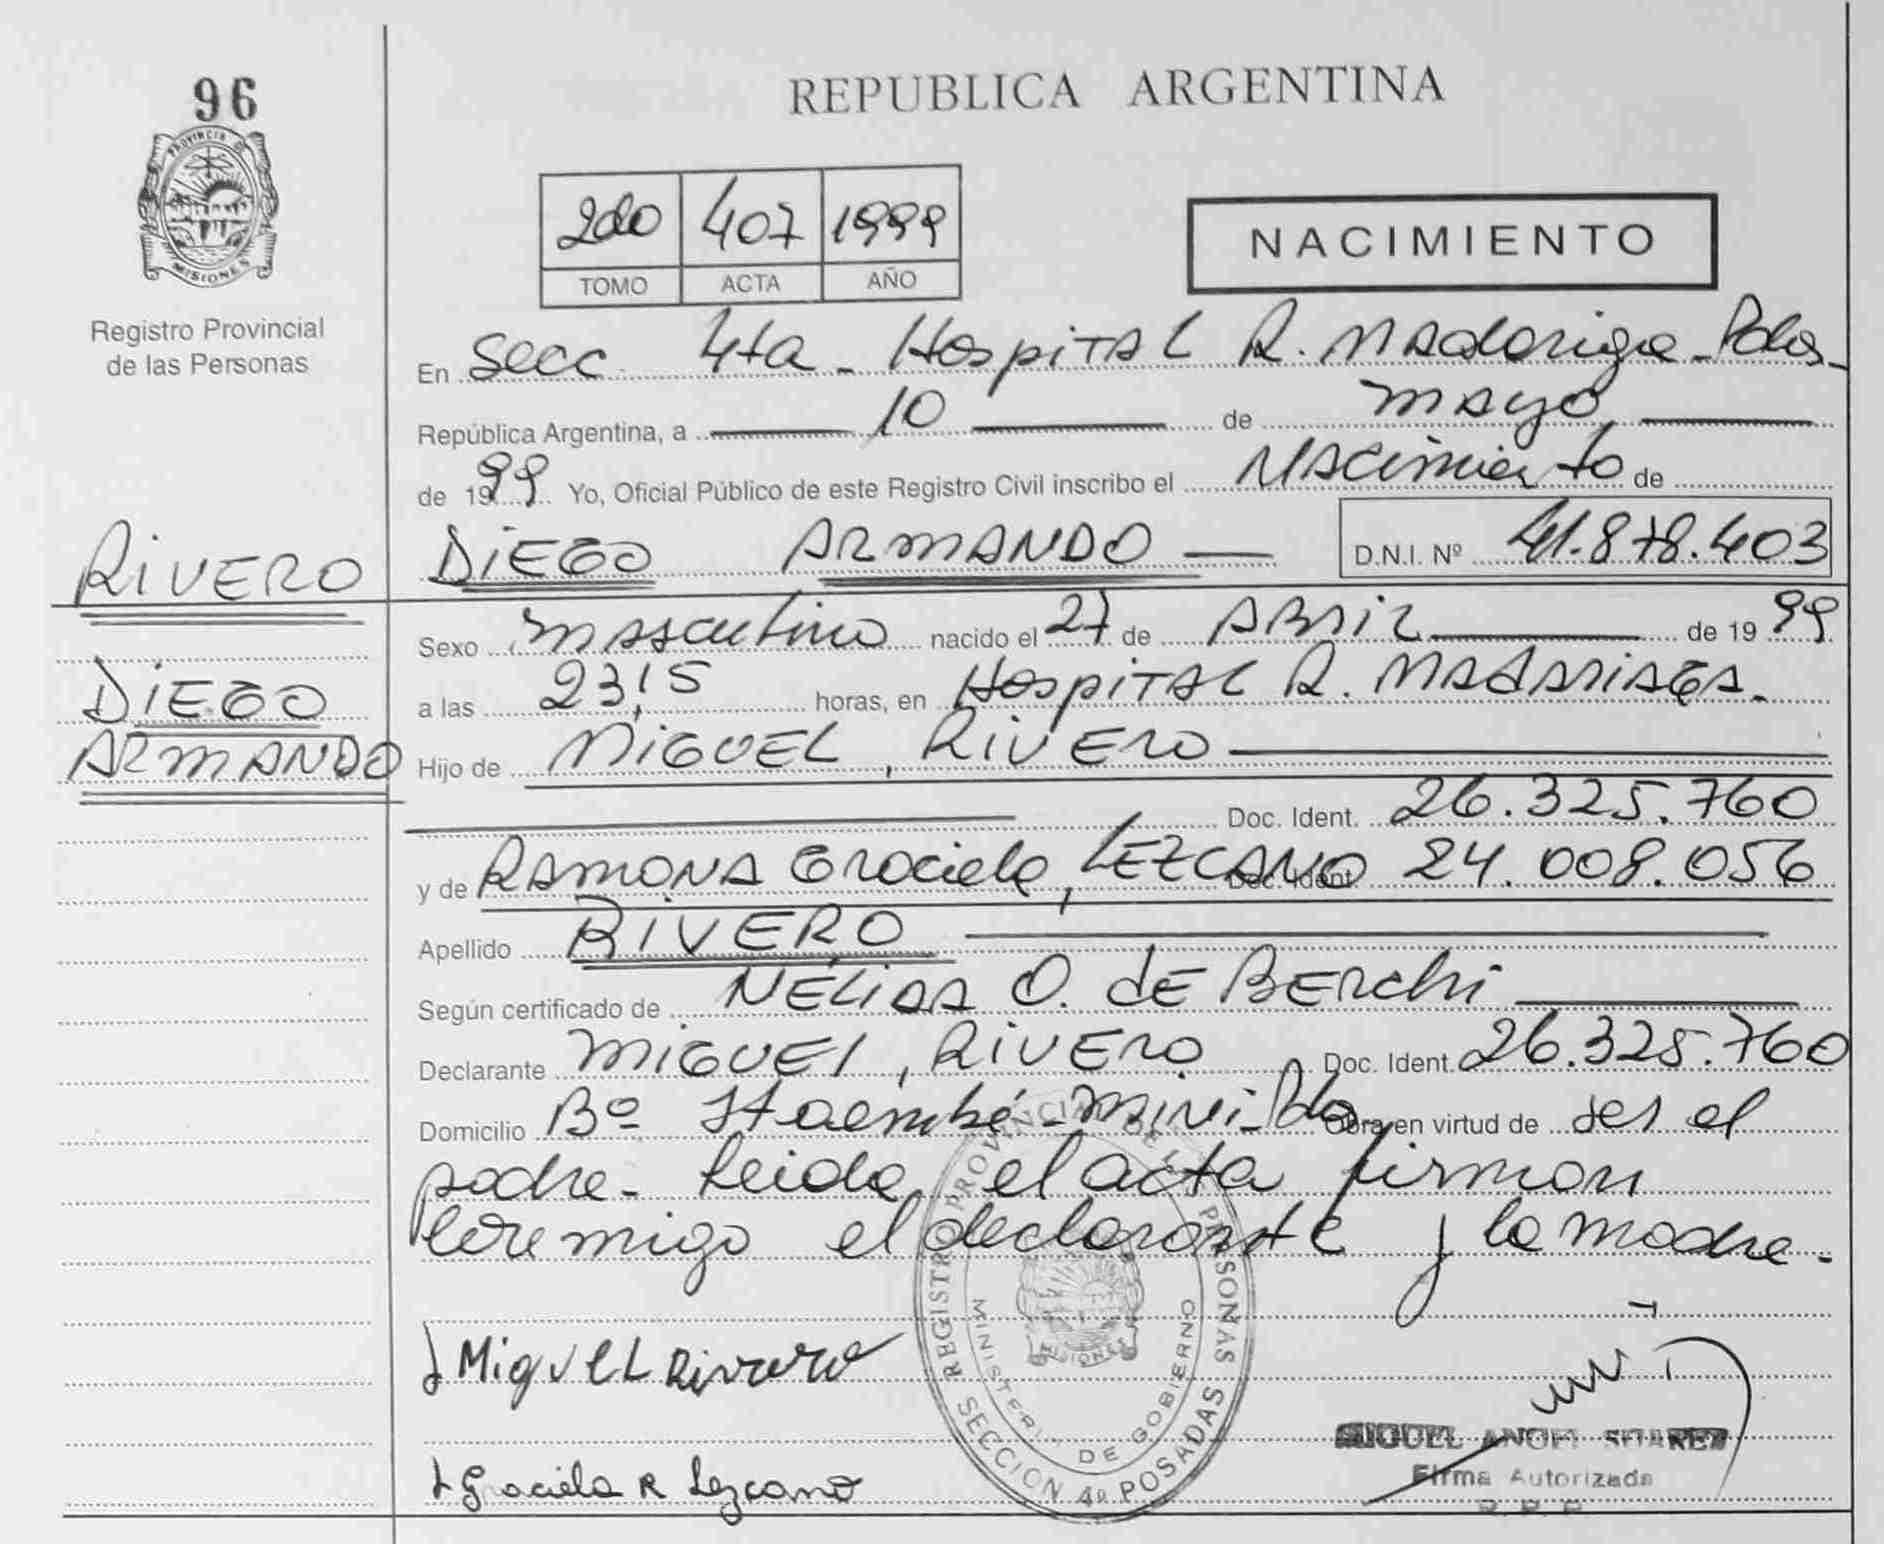 96
REPUBLICA ARGENTINA
PROVINCIA DE
MISIONES
Registro Provincial
de las Personas
2do 407 1999
TOMO ACTA AÑO
NACIMIENTO
En Secc 4ta - Hospital R. Madariaga - Pdas -
República Argentina, a 10 de mayo
de 1999 Yo, Oficial Público de este Registro Civil inscribo el Nacimiento de
RIVERO DIEGO ARMANDO D.N.I. Nº 41.878.403
Sexo masculino nacido el 27 de ABRIL de 1999
DIEGO ARMANDO
a las 23,15 horas, en Hospital R. Madariaga.
Hijo de MIGUEL, RIVERO
Doc. Ident. 26.325.760
y de RAMONA Graciela, LEZCANO Doc. Ident. 24.008.056
Apellido RIVERO
Según certificado de NÉLIDA O. de BERCHI
Declarante MIGUEL, RIVERO Doc. Ident. 26.325.760
Domicilio Bº Itaembé - Miní - Pdas Obra en virtud de ser el
padre - Leida el acta firman
conmigo el declarante y la madre.
Miguel Rivero
Graciela R Lezcano
REGISTRO PROVINCIAL DE LAS PERSONAS
MINISTERIO DE GOBIERNO
MISIONES
SECCION 4ª POSADAS
MIGUEL ANGEL SUAREZ
Firma Autorizada
R. P. P.